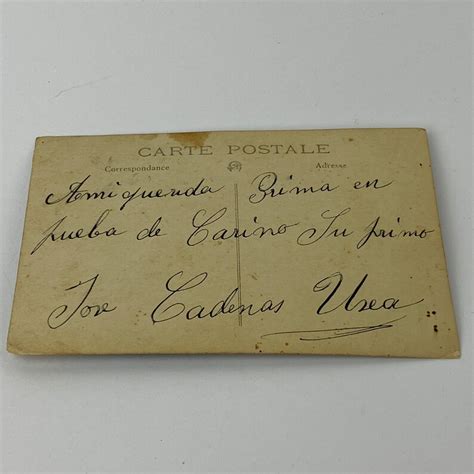 CARTE POSTALE
Correspondance Adresse
Amiquerida Prima en
pueba de Carino Su primo
Jose Cadenas Urea